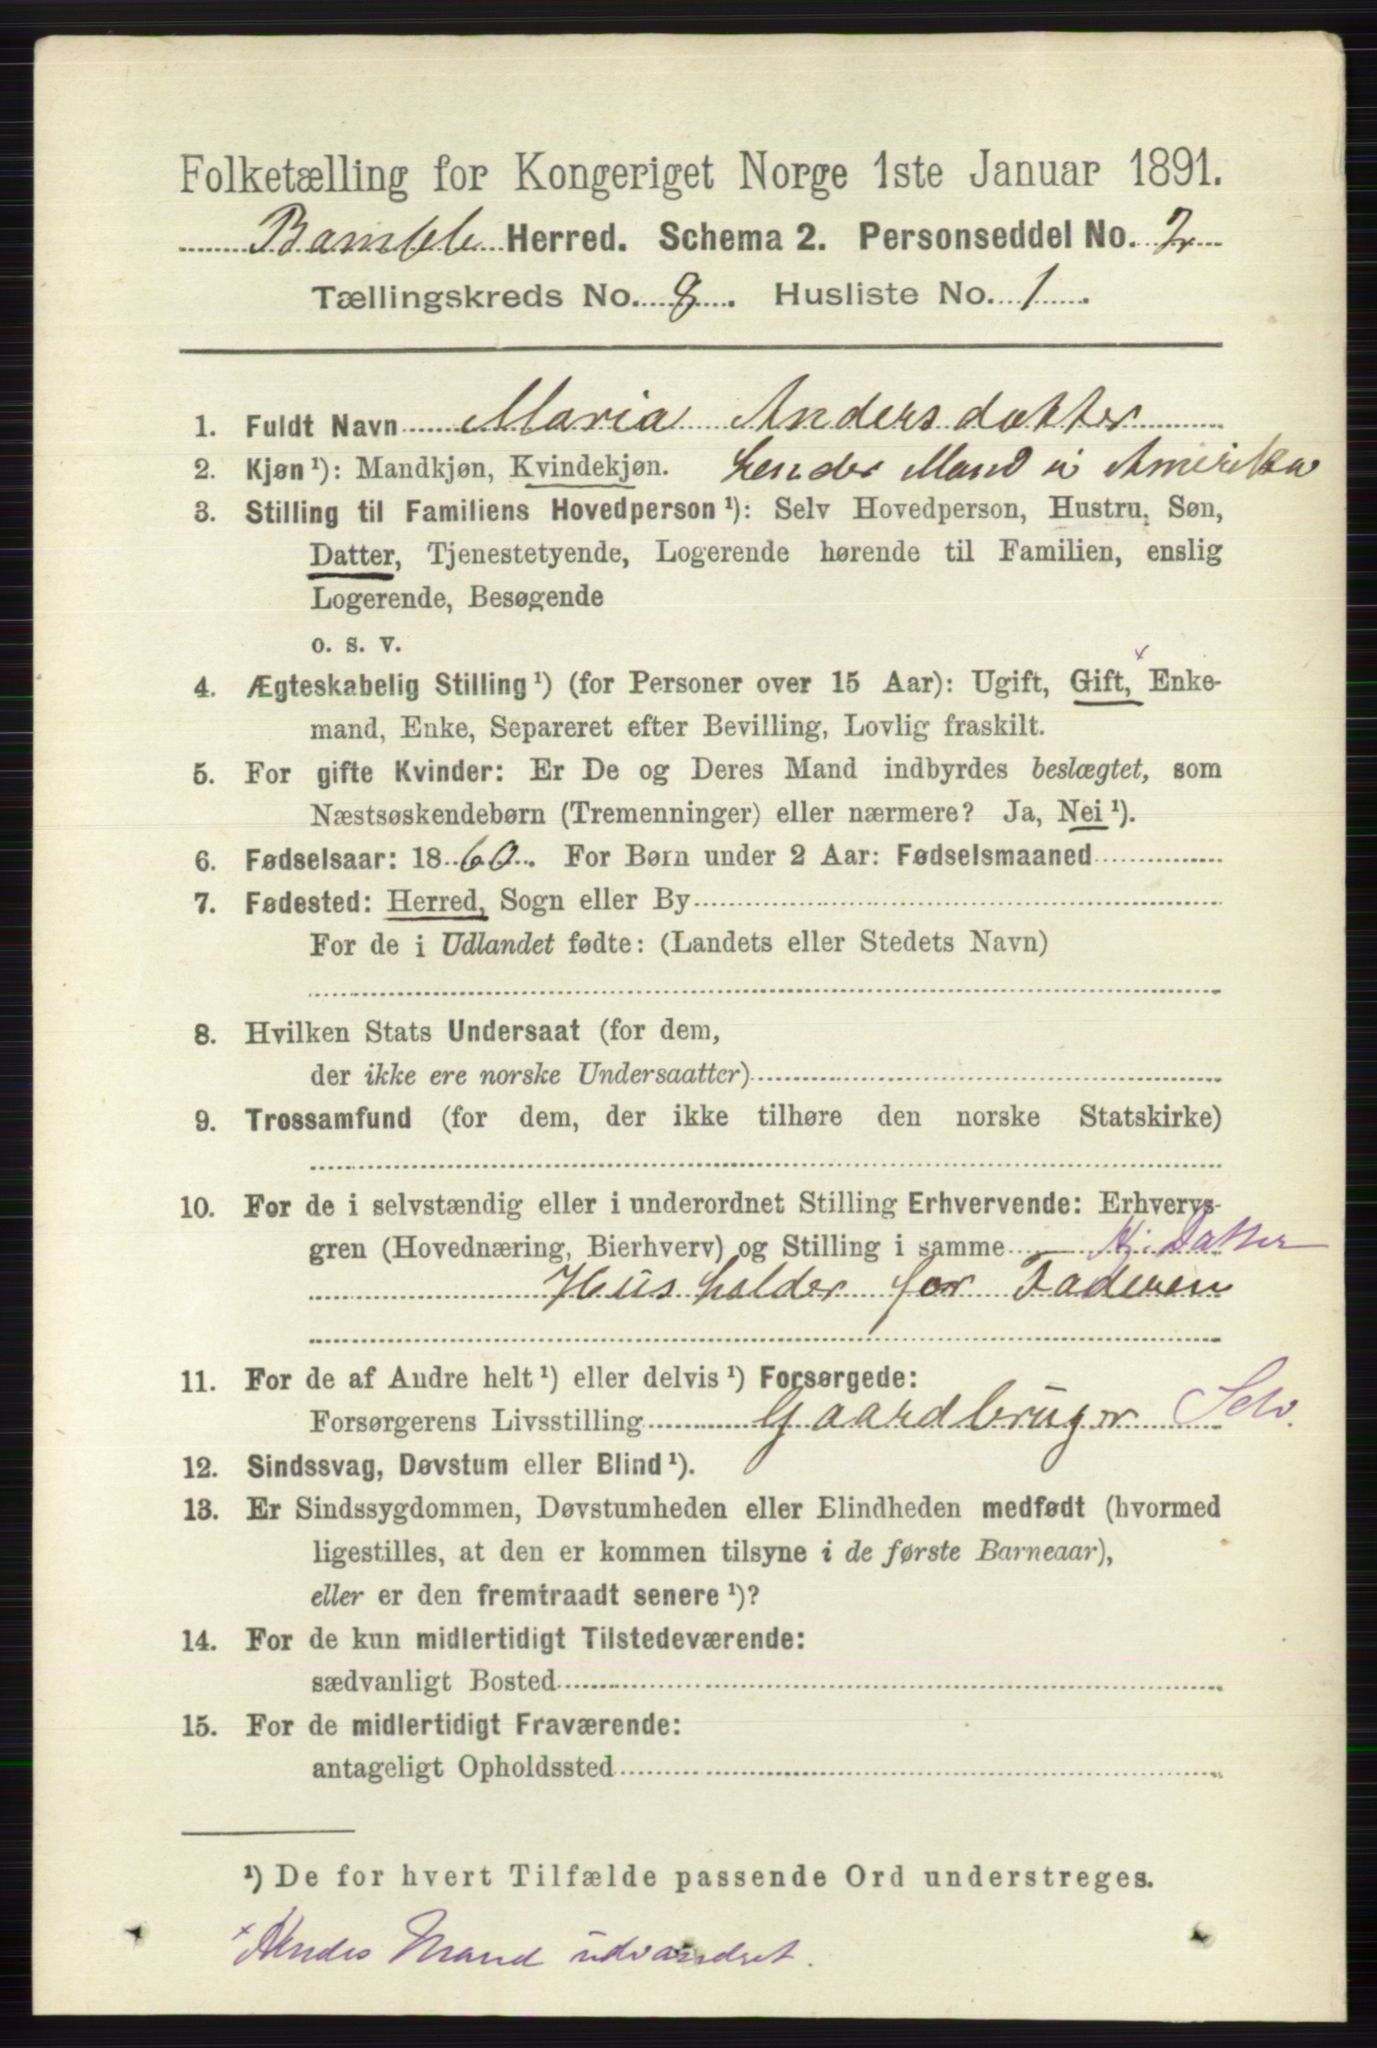 Folketælling for Kongeriget Norge 1ste Januar 1891.
Bamble Herred. Schema 2. Personseddel No. 2
Tællingskreds No. 8. Husliste No. 1.
1. Fuldt Navn Maria Andersdatter
2. Kjøn¹): Mandkjøn, Kvindekjøn. hendes Mand i Amerika
3. Stilling til Familiens Hovedperson¹): Selv Hovedperson, Hustru, Søn,
Datter, Tjenestetyende, Logerende hørende til Familien, enslig
Logerende, Besøgende
o. s. v.
4. Ægteskabelig Stilling¹) (for Personer over 15 Aar): Ugift, Gift, x Enke-
mand, Enke, Separeret efter Bevilling, Lovlig fraskilt.
5. For gifte Kvinder: Er De og Deres Mand indbyrdes beslægtet, som
Næstsøskendebørn (Tremenninger) eller nærmere? Ja, Nei¹).
6. Fødselsaar: 1860. For Børn under 2 Aar: Fødselsmaaned
7. Fødested: Herred, Sogn eller By
For de i Udlandet fødte: (Landets eller Stedets Navn)
8. Hvilken Stats Undersaat (for dem,
der ikke ere norske Undersaatter)
9. Trossamfund (for dem, der ikke tilhøre den norske Statskirke)
10. For de i selvstændig eller i underordnet Stilling Erhvervende: Erhvervs-
gren (Hovednæring, Bierhverv) og Stilling i samme Hj. Datter
Husholder for Faderen
11. For de af Andre helt¹) eller delvis¹) Forsørgede:
Forsørgerens Livsstilling Gaardbruger Selv.
12. Sindssvag, Døvstum eller Blind¹).
13. Er Sindssygdommen, Døvstumheden eller Blindheden medfødt (hvormed
ligestilles, at den er kommen tilsyne i de første Barneaar),
eller er den fremtraadt senere¹)?
14. For de kun midlertidigt Tilstedeværende:
sædvanligt Bosted
15. For de midlertidigt Fraværende:
antageligt Opholdssted
¹) De for hvert Tilfælde passende Ord understreges.
x Hendes Mand udvandret.